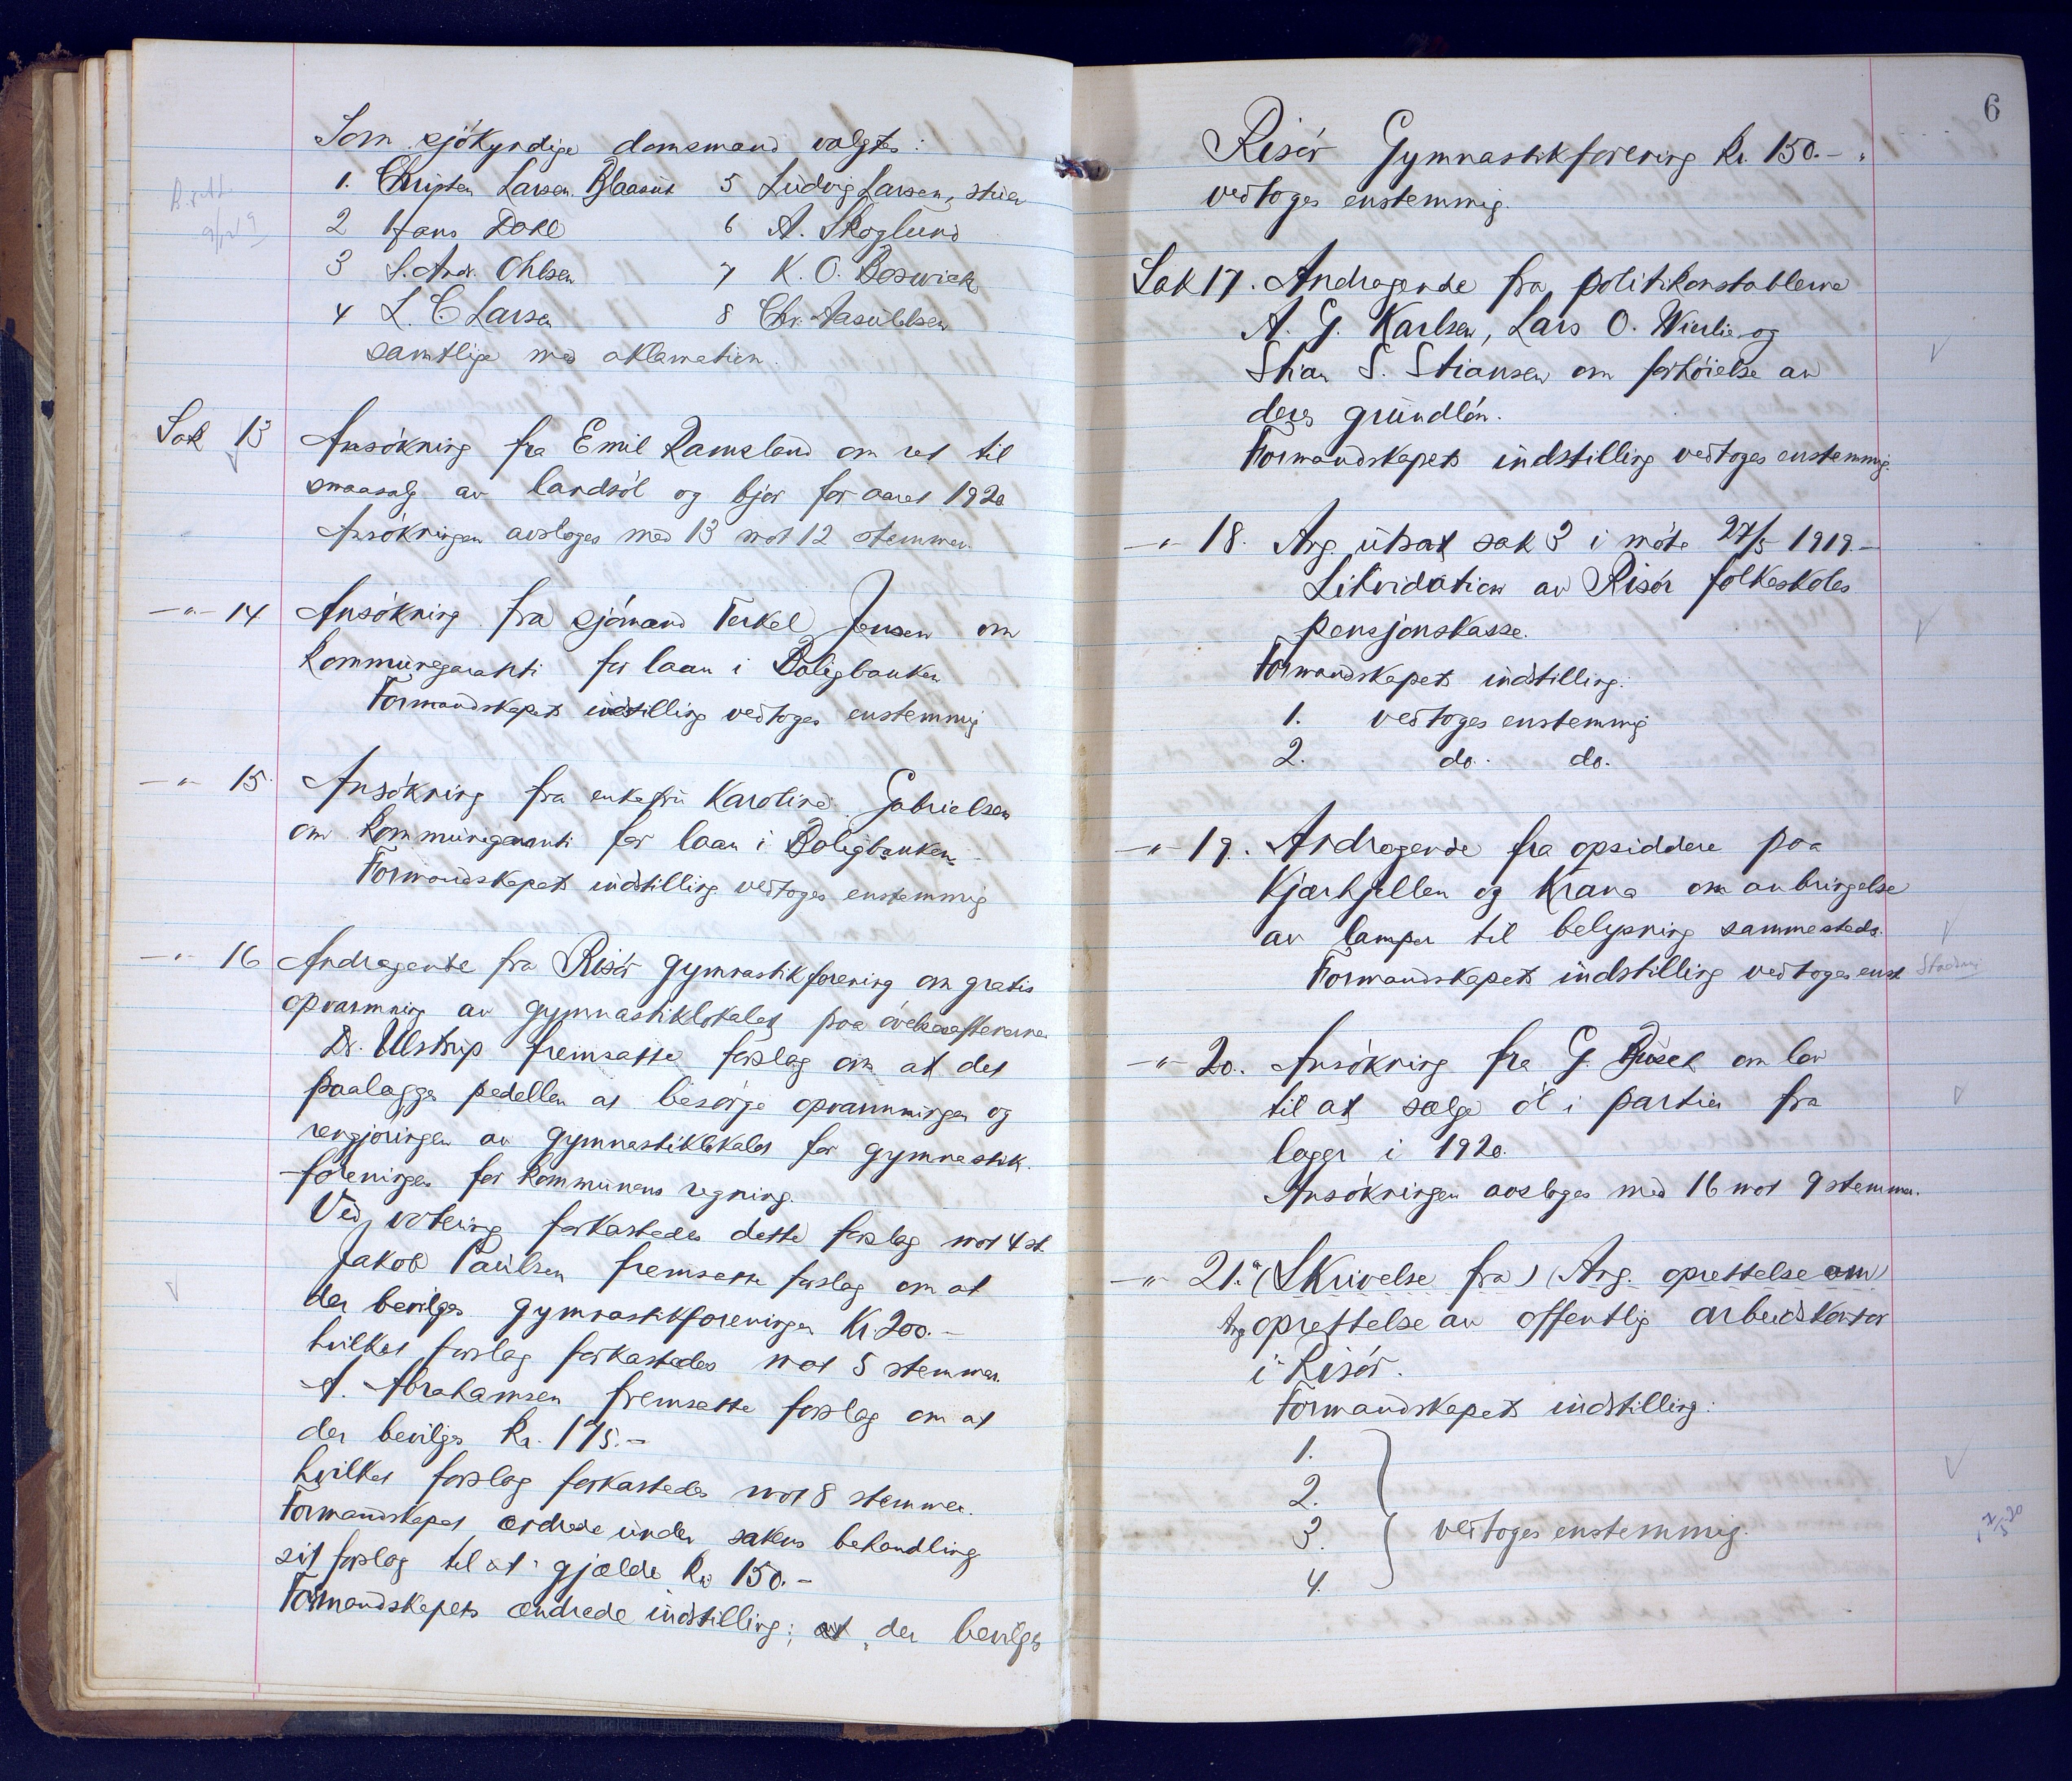 Som sjökyndige domsmænd valgtes:
1. Christen Larsen Blaasut 5 Ludvig Larsen, stuer
2 Hans Dahl 6 A. Skoglund
3 S. Andr. Ohlsen 7 K. O. Boswick
4 L. C Larsen 8 Chr. Aasulvsen
samtlige med aklamation.
Sak 13 Ansökning fra Emil Ramsland om ret til
smaasalg av landsöl og bjor for aaret 1920
Ansökningen avsloges med 13 mot 12 stemmer.
-"- 14 Ansökning fra sjömand Terkel Jensen om
kommunegaranti for laan i Boligbanken
Formandskapets indstilling vedtoges enstemmig
-"- 15. Ansökning fra enkefru Karoline Gabrielsen
om kommunegaranti for laan i Boligbanken
Formandskapets indstilling vedtoges enstemmig
-"- 16 Andragende fra Risör gymnastikforening om gratis
opvarmning av gymnastiklokalet paa övelsesaftenerne
Dr. Ulstrup fremsatte forslag om at det
paalægges pedellen at besörge opvarmningen og
rengjöringen av gymnastiklokalet for gymnastik-
foreningen for kommunens regning.
Ved votering forkastedes dette forslag mot 4 st.
Jakob Paulsen fremsatte forslag om at
der bevilges gymnastikforeningen Kr. 200.-
hvilket forslag forkastedes mot 5 stemmer.
A. Abrahamsen fremsatte forslag om at
der bevilges Kr. 175.-
hvilket forslag forkastedes mot 8 stemmer.
Formandskapet ændrede under sakens behandling
sit forslag til at gjælde Kr 150.-
Formandskapets ændrede indstilling; at "der bevilges
6
Risör Gymnastikforening Kr. 150.-"
vedtoges enstemmig.
Sak 17. Andragende fra politikonstablerne
A. G. Karlsen, Lars O. Wierlie og
Stian S. Stiansen om forhöielse av
deres grundlön.
Formandskapets indstilling vedtoges enstemmig.
-"- 18. Ang. utsat sak 3 i möte 27/5 1919.-
Likvidation av Risör folkeskoles
pensjonskasse.
Formandskapets indstilling:
1. vedtoges enstemmig
2. do. do.
-"- 19. Andragende fra opsiddere paa
Kjærhjellen og Krana om anbringelse
av lamper til belysning sammesteds.
Formandskapets indstilling vedtoges enst.
-"- 20. Ansökning fra G. Busch om lov
til at sælge öl i partier fra
lager i 1920.
Ansökningen avsloges med 16 mot 9 stemmer.
-"- 21. (Skrivelse fra) (Ang. oprettelse om)
Ang oprettelse av offentlig arbeidskontor
i Risör.
Formandskapets indstilling:
1.
2.
3. vedtoges enstemmig.
4.